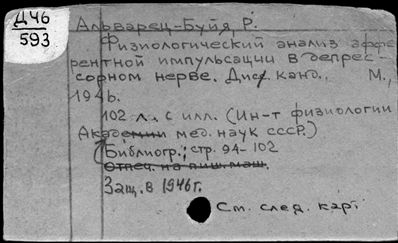 Дч6
593
Альварец-Буйя, Р.
Физиологический анализ аффе-
рентной импульсации в депрес-
сорном нерве. Дис. канд., М.,
1946.
102 л. с илл. (Ин-т физиологии
Академии мед. наук СССР.)
(Библиогр.; стр. 94-102
Отпеч. на пиш. маш.
Защ. в 1946г.
См. след. карт